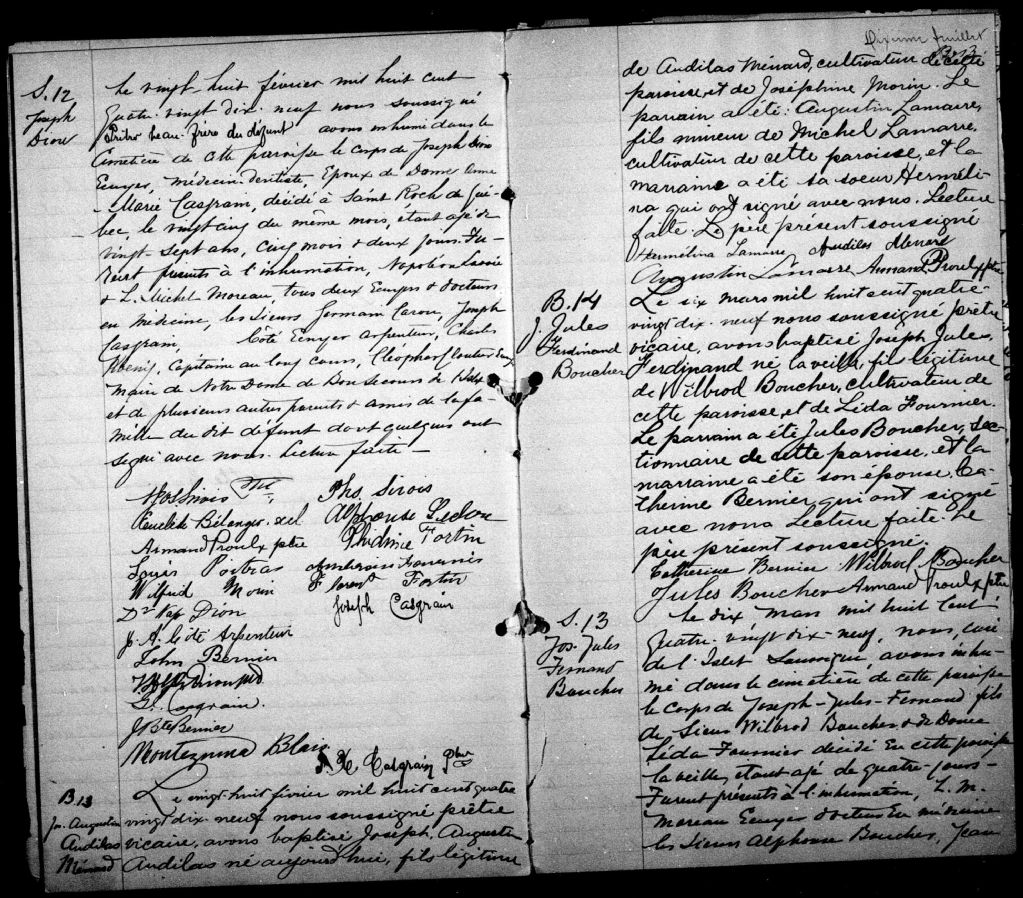 S. 12
Joseph
Dion
Le vingt huit février mil huit cent
quatre vingt dix-neuf nous soussigné
Prêtre beau-frère du défunt avons inhumé dans le
Cimetière de cette paroisse le corps de Joseph Dion
Ecuyer, médecin-dentiste, Epoux de Dame Anne
Marie Casgrain, décédé à Saint Roch de Qué-
bec, le vingt cinq du même mois, étant agé de
vingt-sept ans, cinq mois & deux jours. Fu-
rent presents à l'inhumation, Napoléon
& L. Michel Moreau, tous deux Ecuyers & docteurs
en médecine, les Sieurs Germain Caron, Joseph
Casgrain, Côté Ecuyer arpenteur, Charles
Koenig, Capitaine au long cours, Cléophas Cloutier Ecuyer
Maire de Notre Dame de Bonsecours de
et de plusieurs autres parents & amis de la fa-
mille du dit défunt dont quelques ont
signé avec nous. Lecture faite —
Phs. Sirois
Bélanger
Alphonse Leclerc
Armand Proulx ptre
Fortin
Louis Poitras
Wilfrid Morin
Fortin
Dr Dion
Joseph Casgrain
J. A. Côté Arpenteur
John Bernier
Casgrain.
J Bte Bernier
Montezuma Blais
Casgrain Ptre
B 13
Jos. Augustin
Audilas
Ménard
Le vingt-huit février mil huit cent quatre
vingt dix-neuf nous soussigné prêtre
vicaire, avons baptisé Joseph, Auguste
Audilas né aujourd'hui, fils légitime
Dixième feuillet
B. 13
de Audilas Ménard, cultivateur de cette
paroisse, et de Joséphine Morin. Le
parrain a été: Augustin Lamarre,
fils mineur de Michel Lamarre,
cultivateur de cette paroisse, et la
marraine a été sa soeur Herméli-
na qui ont signé avec nous. Lecture
faite Le père présent soussigné
Hermélina Lamarre, Audilas Menard
Augustin Lamarre Armand Proulx ptre
B. 14
J. Jules
Ferdinand
Boucher
Le six mars mil huit cent quatre-
vingt dix-neuf nous soussigné prêtre
vicaire, avons baptisé Joseph Jules
Ferdinand né la veille, fils légitime
de Wilbrod Boucher, cultivateur de
cette paroisse, et de Lida Fournier.
Le parrain a été Jules Boucher, sec-
tionnaire de cette paroisse, et la
marraine a été son épouse, Ca-
therine Bernier, qui ont signé
avec nous Lecture faite. Le
père présent soussigné.
Catherine Bernier Wilbrod Boucher
Jules Boucher Armand Proulx ptre
S. 13
Jos. Jules
Fernand
Boucher
Le dix mars mil huit cent
quatre-vingt dix-neuf, nous, curé
de l'Islet soussigné, avons inhu-
mé dans le cimetière de cette paroisse
le corps de Joseph-Jules-Fernand fils
de Sieur Wilbrod Boucher & de Dame
Lida Fournier décédé en cette paroisse
la veille, étant agé de quatre jours-
Furent présents à l'inhumation, L. M.
Moreau Ecuyer docteur en médecine
les Sieurs Alphonse Boucher, Jean